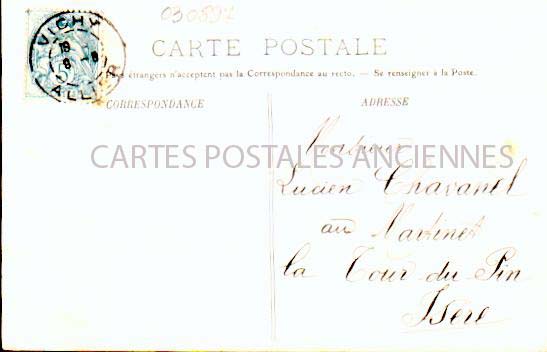 030597
VICHY
18
8
ALLIER
CARTE POSTALE
étrangers n'acceptent pas la Correspondance au recto. — Se renseigner à la Poste.
CORRESPONDANCE
ADRESSE
CARTES POSTALES ANCIENNES
Monsieur
Lucien Chavanel
au Martinet
la Tour-du-Pin
Isère